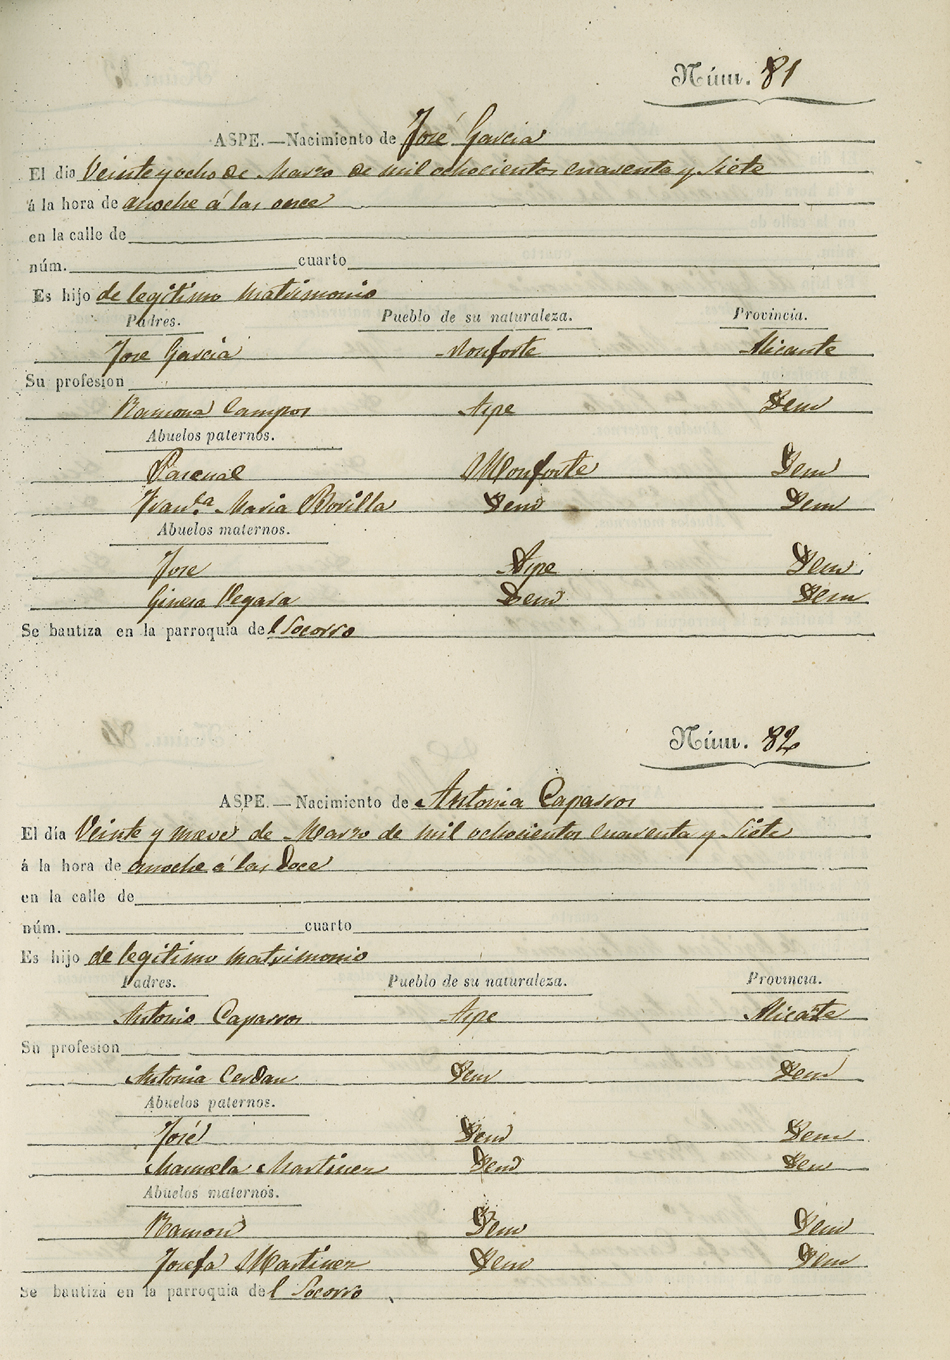 Núm. 81
ASPE.—Nacimiento de José Garcia
El dia Veinte y ocho de Marzo de mil ochocientos cuarenta y Siete
á la hora de anoche á las once
en la calle de
núm. cuarto
Es hijo de legitimo matrimonio
Padres. Pueblo de su naturaleza. Provincia.
Jose Garcia Monforte Alicante
Su profesion
Ramona Campos Aspe Idem
Abuelos paternos.
Pascual Monforte Idem
Fran.ca Maria Idem Idem
Abuelos maternos.
Jose Aspe Idem
Ginesa Vegara Idem Idem
Se bautiza en la parroquia del Socorro
Núm. 82
ASPE.—Nacimiento de Antonia Caparros
El día Veinte y nueve de Marzo de mil ochocientos cuarenta y Siete
á la hora de anoche á las Doce
en la calle de
núm. cuarto
Es hijo de legitimo matrimonio
Padres. Pueblo de su naturaleza. Provincia.
Antonio Caparros Aspe Alicante
Su profesion
Antonia Cerdan Idem Idem
Abuelos paternos.
José Idem Idem
Manuela Martinez Idem Idem
Abuelos maternos.
Ramon Idem Idem
Josefa Martinez Idem Idem
Se bautiza en la parroquia del Socorro